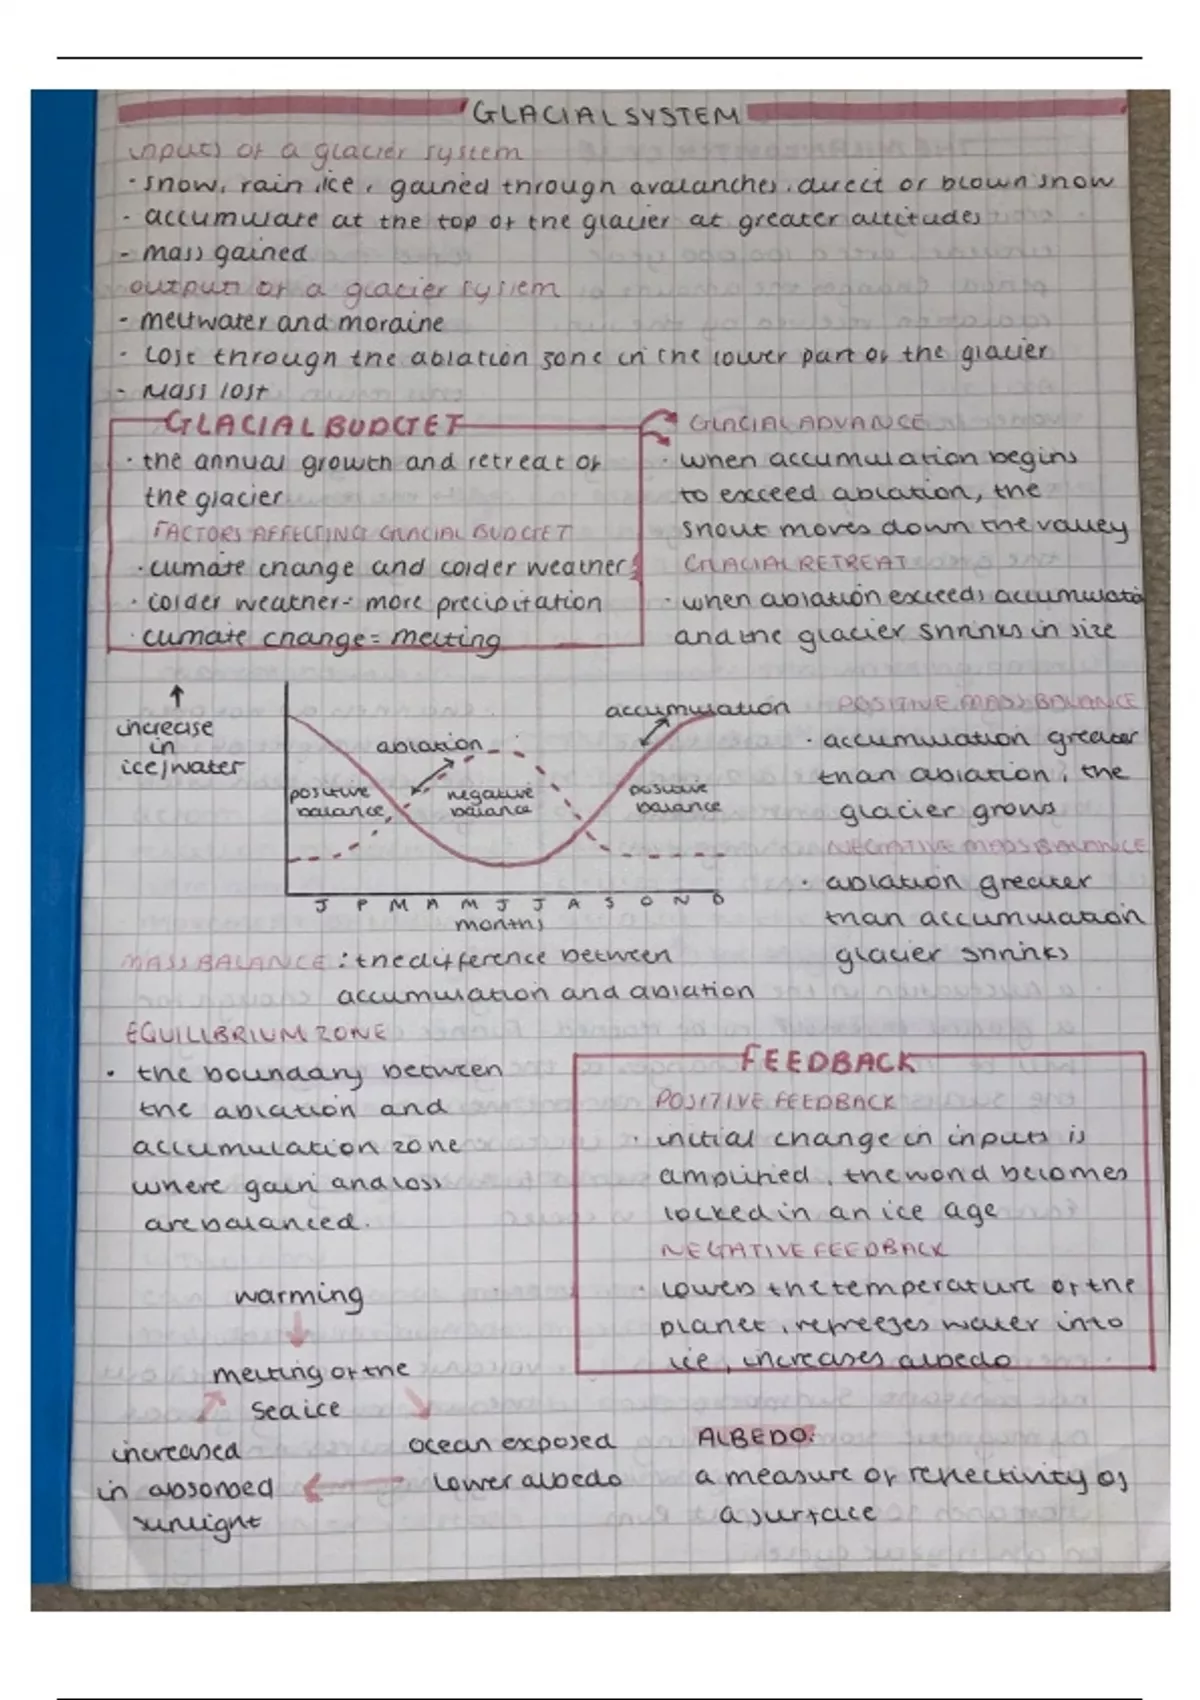 GLACIAL SYSTEM
inputs of a glacier system
· snow, rain, ice, gained through avalanches, direct or blown snow
- accumulate at the top of the glacier at greater altitudes
- mass gained
outputs of a glacier system
- meltwater and moraine
- lost through the ablation zone in the lower part of the glacier
- mass lost
GLACIAL BUDGET
· the annual growth and retreat of
the glacier
FACTORS AFFECTING GLACIAL BUDGET
· climate change and colder weather
· colder weather = more precipitation
· climate change = melting
GLACIAL ADVANCE
· when accumulation begins
to exceed ablation, the
snout moves down the valley
GLACIAL RETREAT
· when ablation exceeds accumulatio
and the glacier shrinks in size
↑
increase
in
ice/water
accumulation
ablation
positive
balance
negative
balance
positive
balance
J F M A M J J A S O N D
months
POSITIVE MASS BALANCE
· accumulation greater
than ablation, the
glacier grows
NEGATIVE MASS BALANCE
· ablation greater
than accumulation
glacier shrinks
MASS BALANCE : the difference between
accumulation and ablation
EQUILIBRIUM ZONE
· the boundary between
the ablation and
accumulation zone
where gain and loss
are balanced.
FEEDBACK
POSITIVE FEEDBACK
· initial change in inputs is
amplified, the world becomes
locked in an ice age
NEGATIVE FEEDBACK
· lowers the temperature of the
planet, refreezes water into
ice, increases albedo
warming
melting of the
sea ice
ocean exposed
lower albedo
increased
in absorbed
sunlight
ALBEDO:
a measure of reflectivity of
a surface